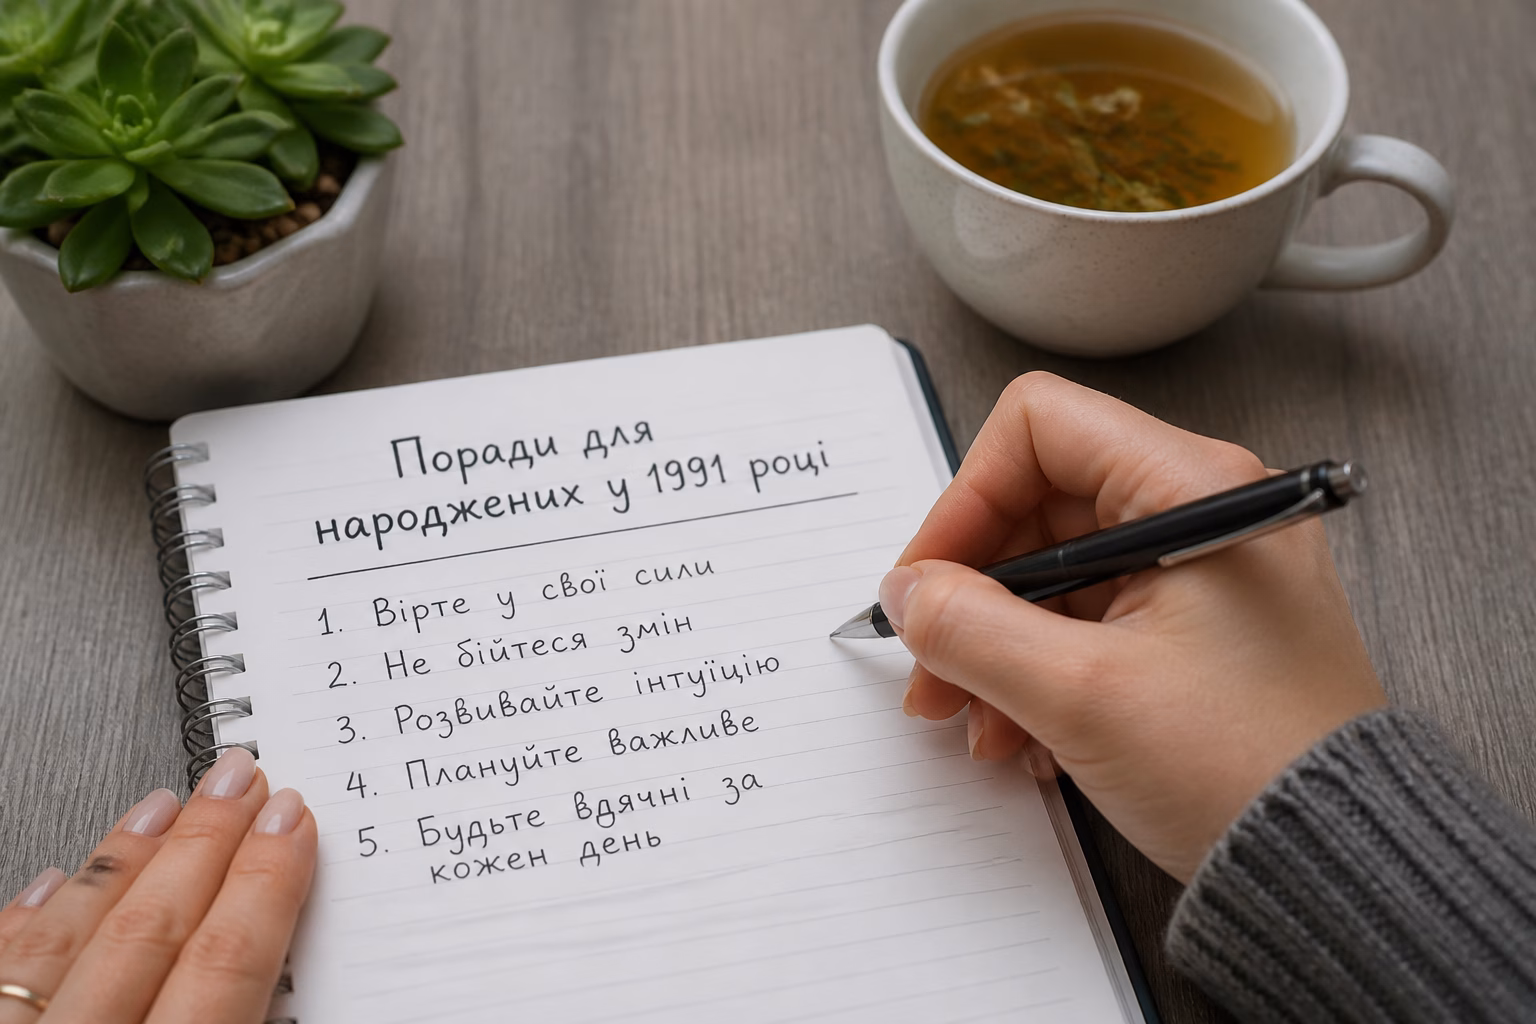 Поради для
народжених у 1991 році
1. Вірте у свої сили
2. Не бійтеся змін
3. Розвивайте інтуїцію
4. Плануйте важливе
5. Будьте вдячні за
кожен день